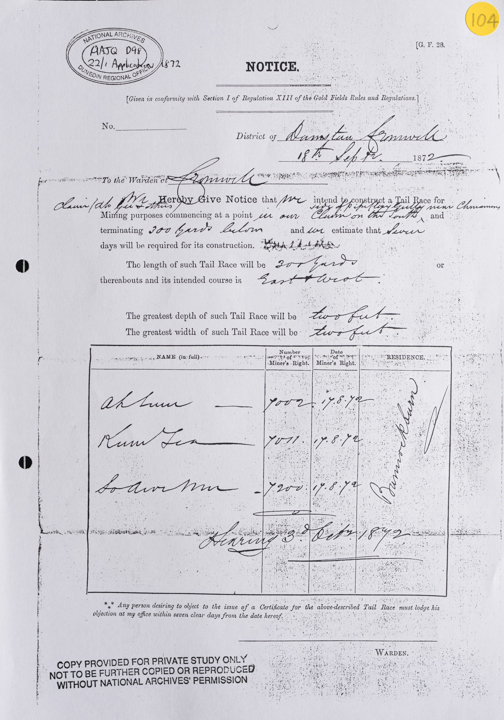 104
NATIONAL ARCHIVES
AAJQ D98
22/1 Application 1872
DUNEDIN REGIONAL OFFICE
[G. F. 28.
NOTICE.
[Given in conformity with Section I of Regulation XIII of the Gold Fields Rules and Regulations.]
No.
District of Dunstan Cromwell
18th Septr. 1872
To the Warden of Cromwell
We Hereby Give Notice that We intend to construct a Tail Race for
Mining purposes commencing at a point in our Claim on the South and
terminating 200 yards below and we estimate that Seven
days will be required for its construction.
The length of such Tail Race will be 200 yards or
thereabouts and its intended course is East & West.
The greatest depth of such Tail Race will be two feet.
The greatest width of such Tail Race will be two feet.
NAME (in full). Number of Miner's Right. Date of Miner's Right. RESIDENCE.
Ah Lum 7002 17.8.72
Kum 7011 17.8.72
7200 17.8.72
Bannockburn
Hearing 3d Octr 1872
*** Any person desiring to object to the issue of a Certificate for the above-described Tail Race must lodge his
objection at my office within seven clear days from the date hereof.
WARDEN.
COPY PROVIDED FOR PRIVATE STUDY ONLY
NOT TO BE FURTHER COPIED OR REPRODUCED
WITHOUT NATIONAL ARCHIVES' PERMISSION